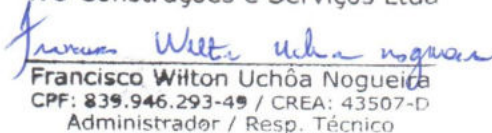 Construções e Serviços Ltda
Francisco Wilton Uchôa Nogueira
Francisco Wilton Uchôa Nogueira
CPF: 839.946.293-49 / CREA: 43507-D
Administrador / Resp. Técnico